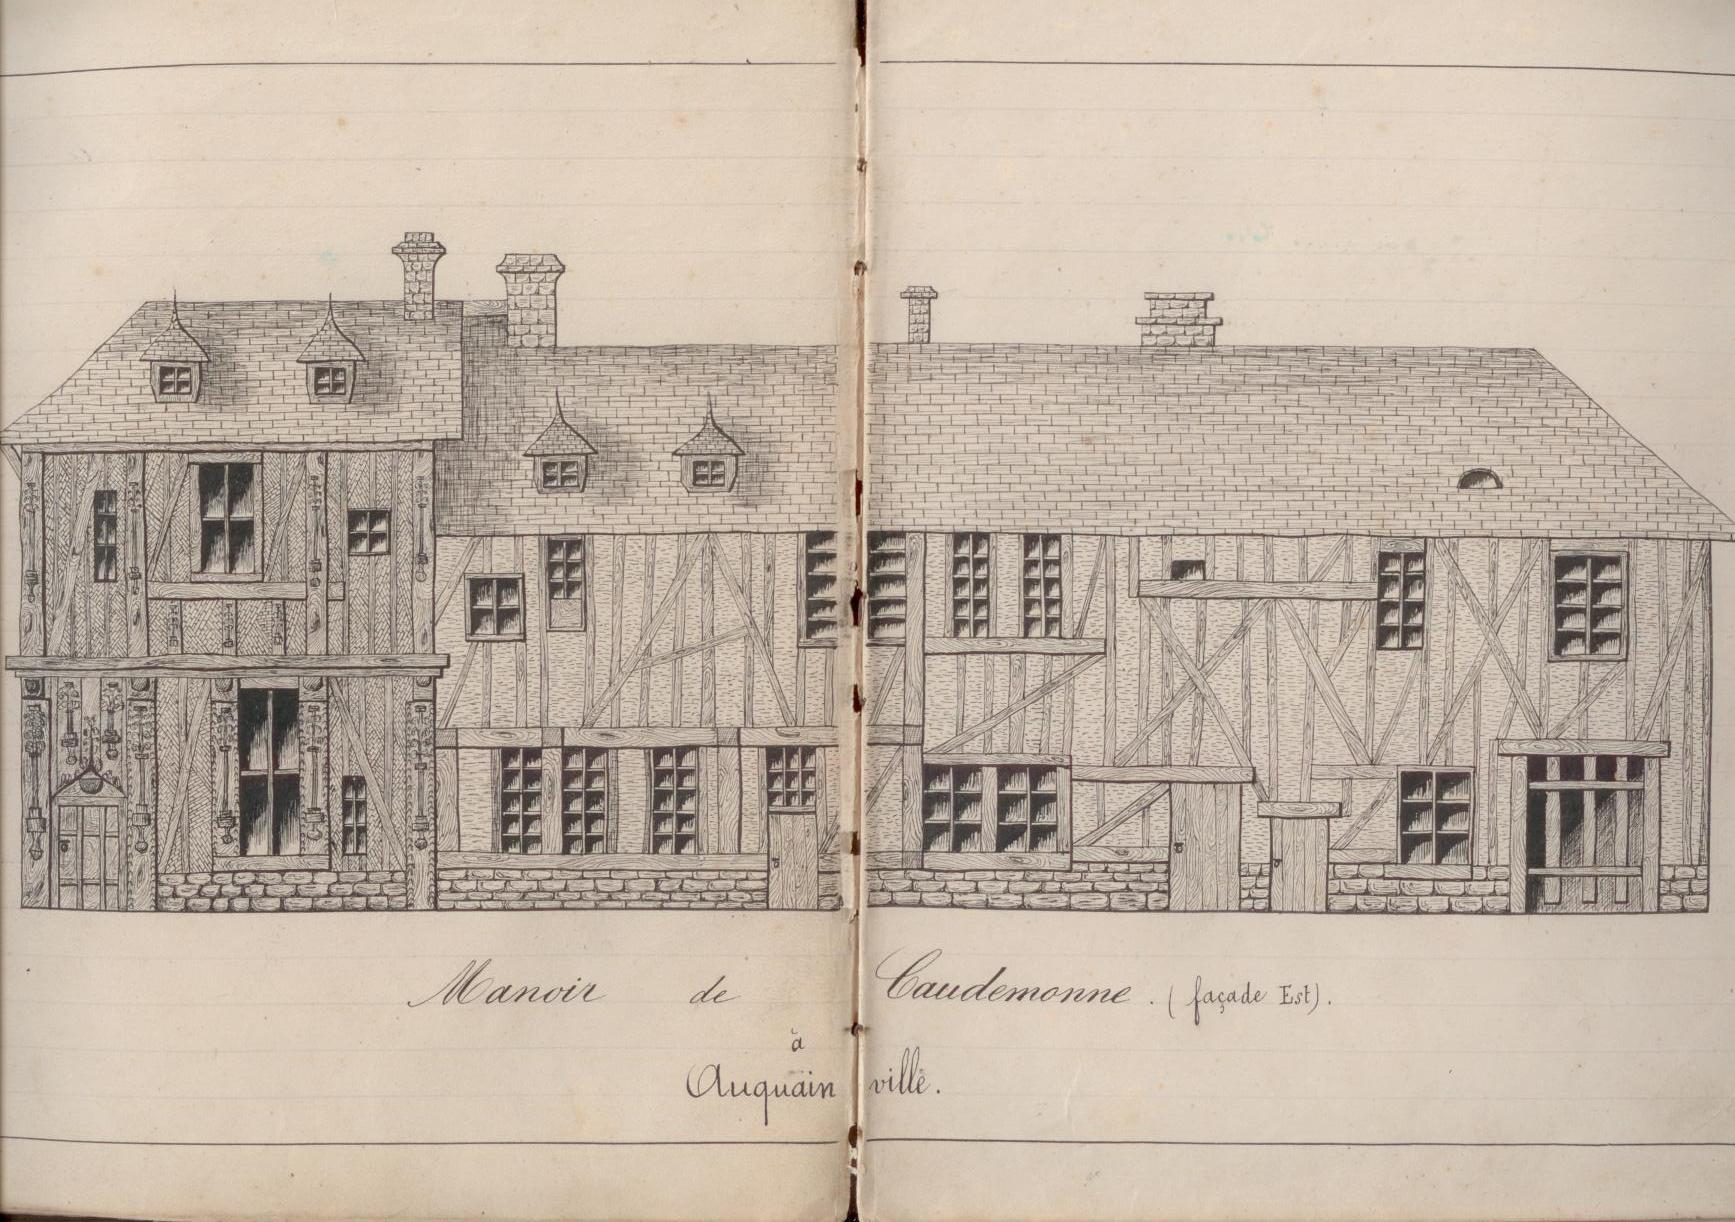 Manoir de Caudemonne. (façade Est).
à
Auquainville.